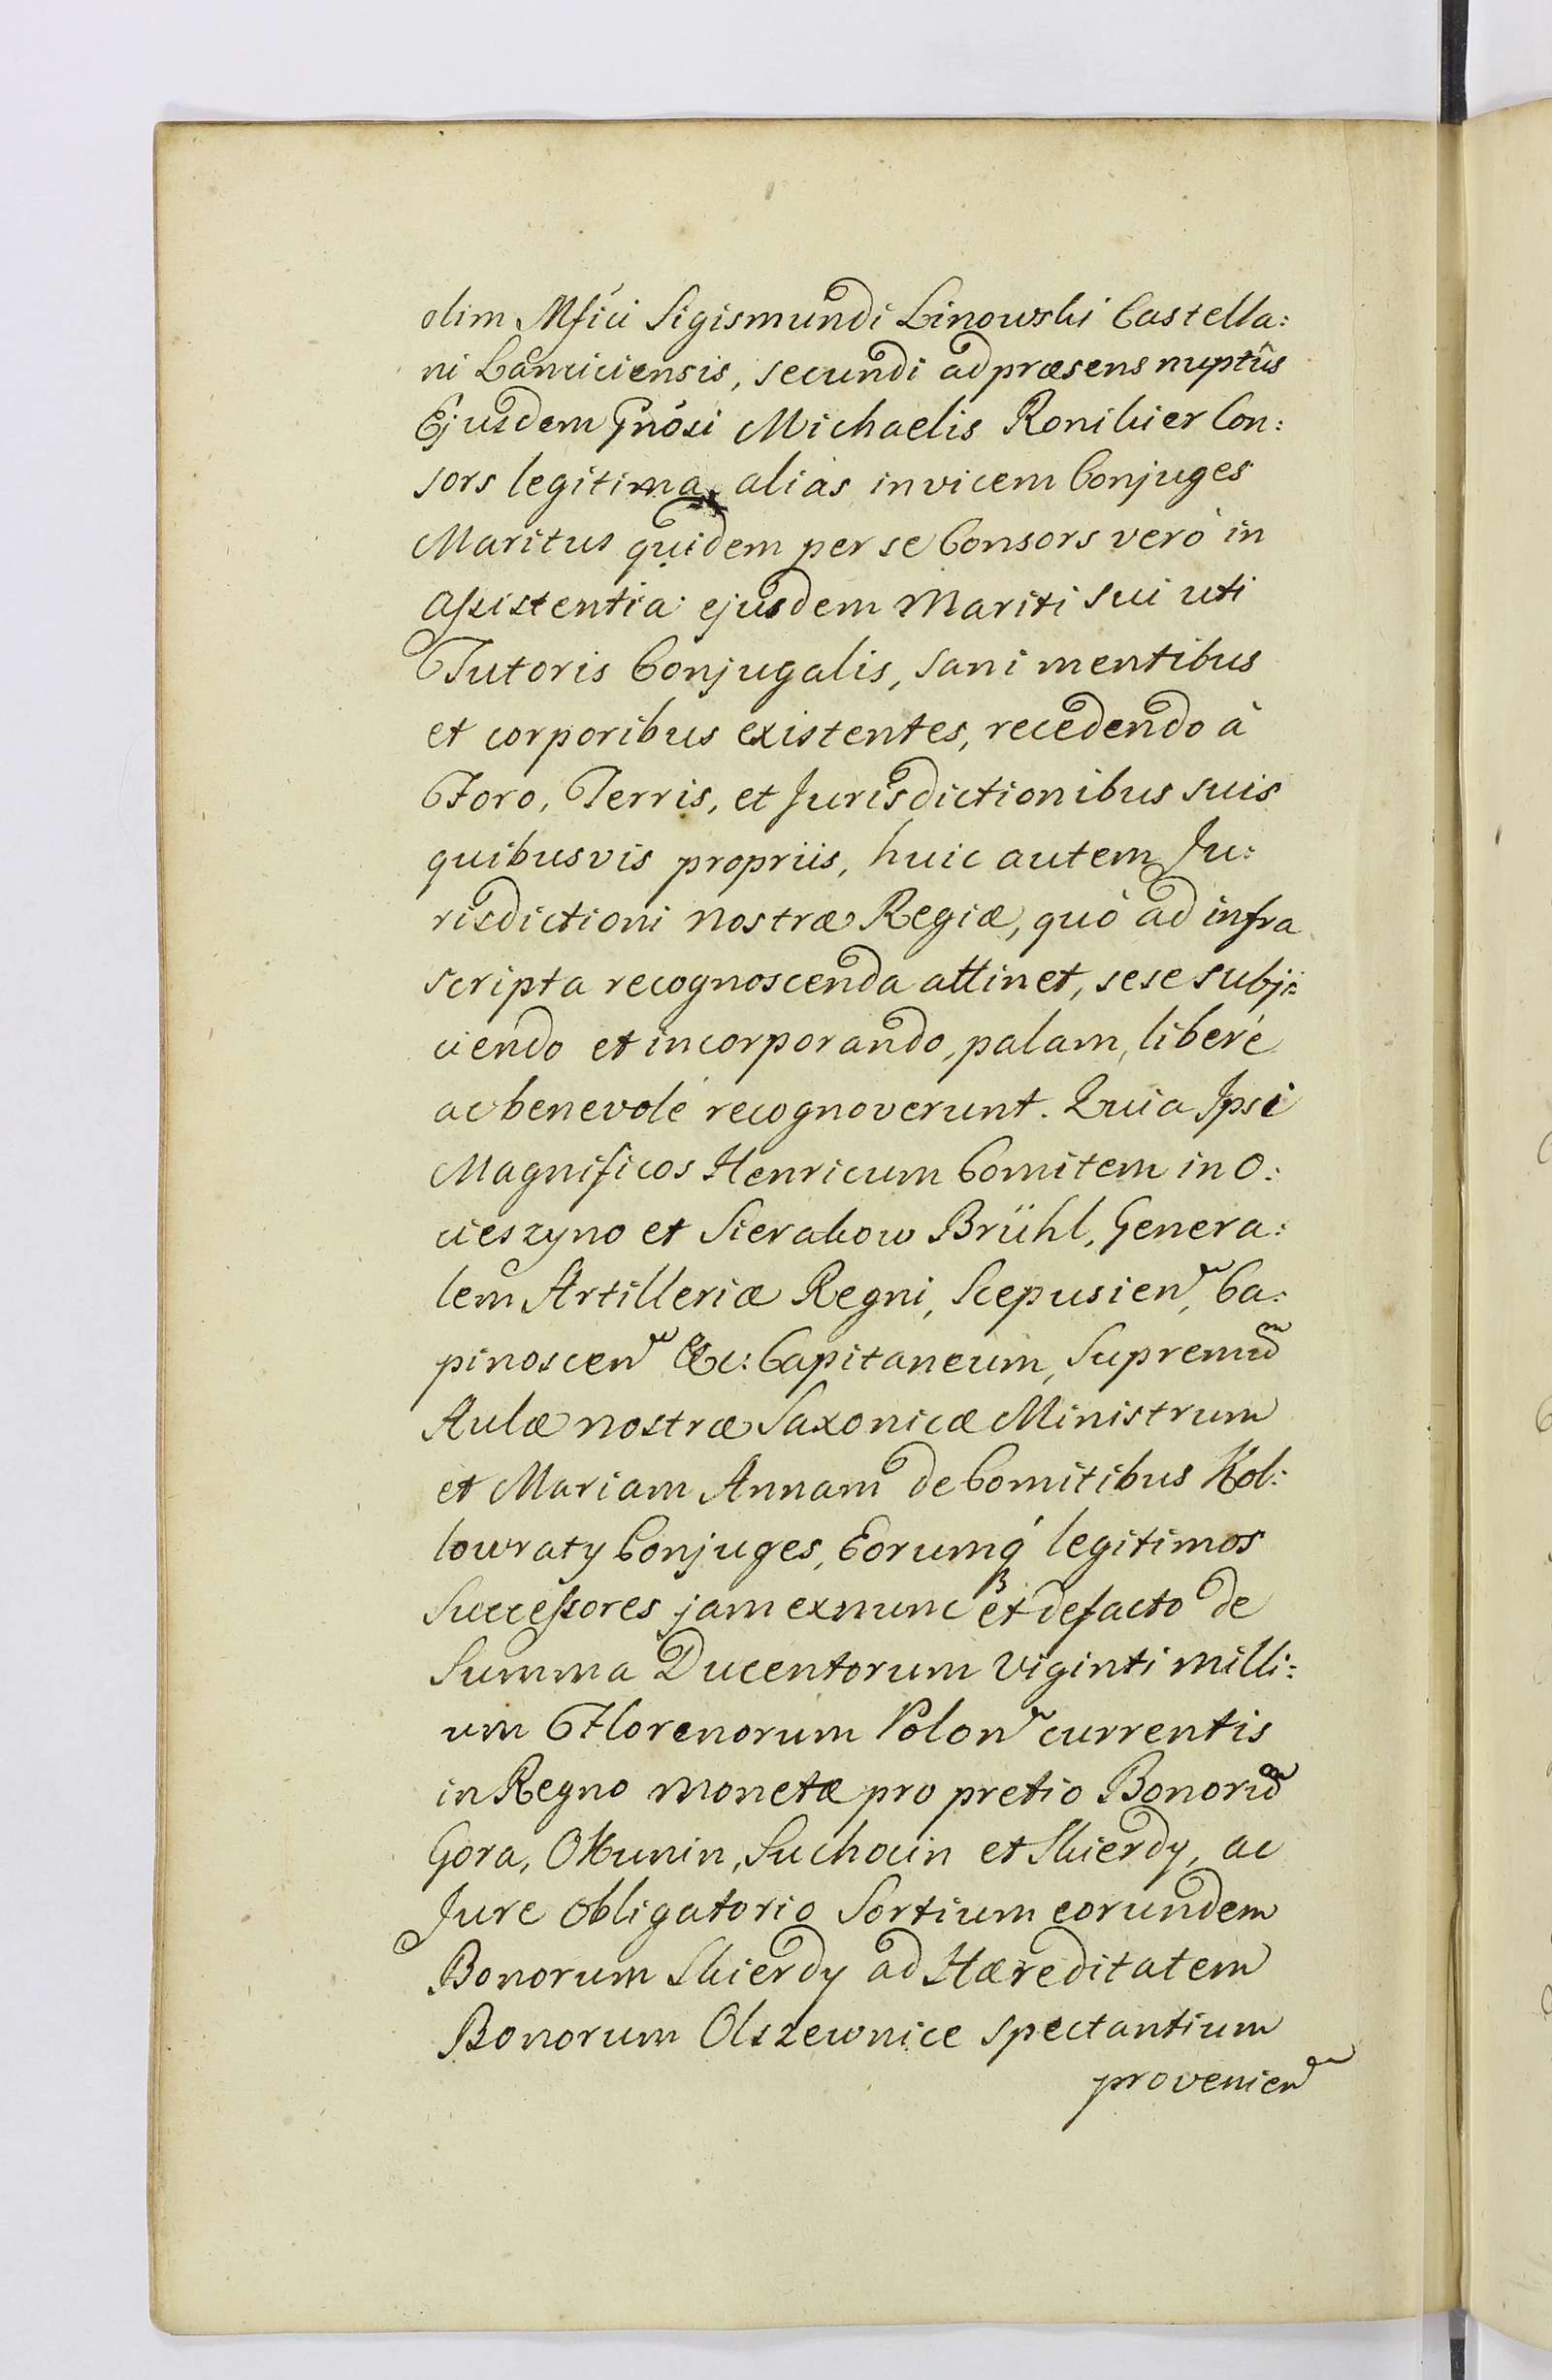 olim Mfici Sigismundi Linowski Castella:
ni Lanciciensis, secundi ad præsens nuptûs
Ejusdem Gnósi Michaelis Ronikier Con:
sors legitima, aliàs invicem Conjuges
Maritus quidem per se Consors verò in
Assistentia ejusdem Mariti sui uti
Tutoris Conjugalis, sani mentibus
et corporibus existentes, recedendo à
Foro, Terris, et Jurisdictionibus suis
quibusvis propriis, huic autem Ju:
risdictioni nostræ Regiæ, quò ad infra
scripta recognoscenda attinet, sese subji:
ciendo et incorporando, palam, liberè
ac benevolè recognoverunt. Quia Ipsi
Magnificos Henricum Comitem in O:
cieszyno et Sierakow Brühl, Genera:
lem Artilleriæ Regni, Scepusien̄, Ca:
pinoscen̄ &c: Capitaneum, Supremum̄
Aulæ nostræ Saxonicæ Ministrum
et Mariam Annam de Comitibus Kol:
lowraty Conjuges, Eorumq́ legitimos
Successores jam exnunc et defacto de
Summa Ducentorum viginti milli:
um Florenorum Polon̄ currentis
in Regno monetæ pro pretio Bonorum̄
Gora, Okunin, Suchocin et Skierdy, ac
Jure obligatorio Sortium eorundem
Bonorum Skierdy ad Hæreditatem
Bonorum Olszewnice spectantium
provenien̄